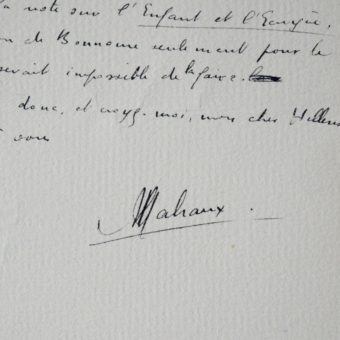 a note sur l'Enfant et l'Ecuyère,
on de Bonnome seulement pour le
serait impossible de la faire.
donc, et croyez-moi, mon cher Hellens
à vous
Malraux.